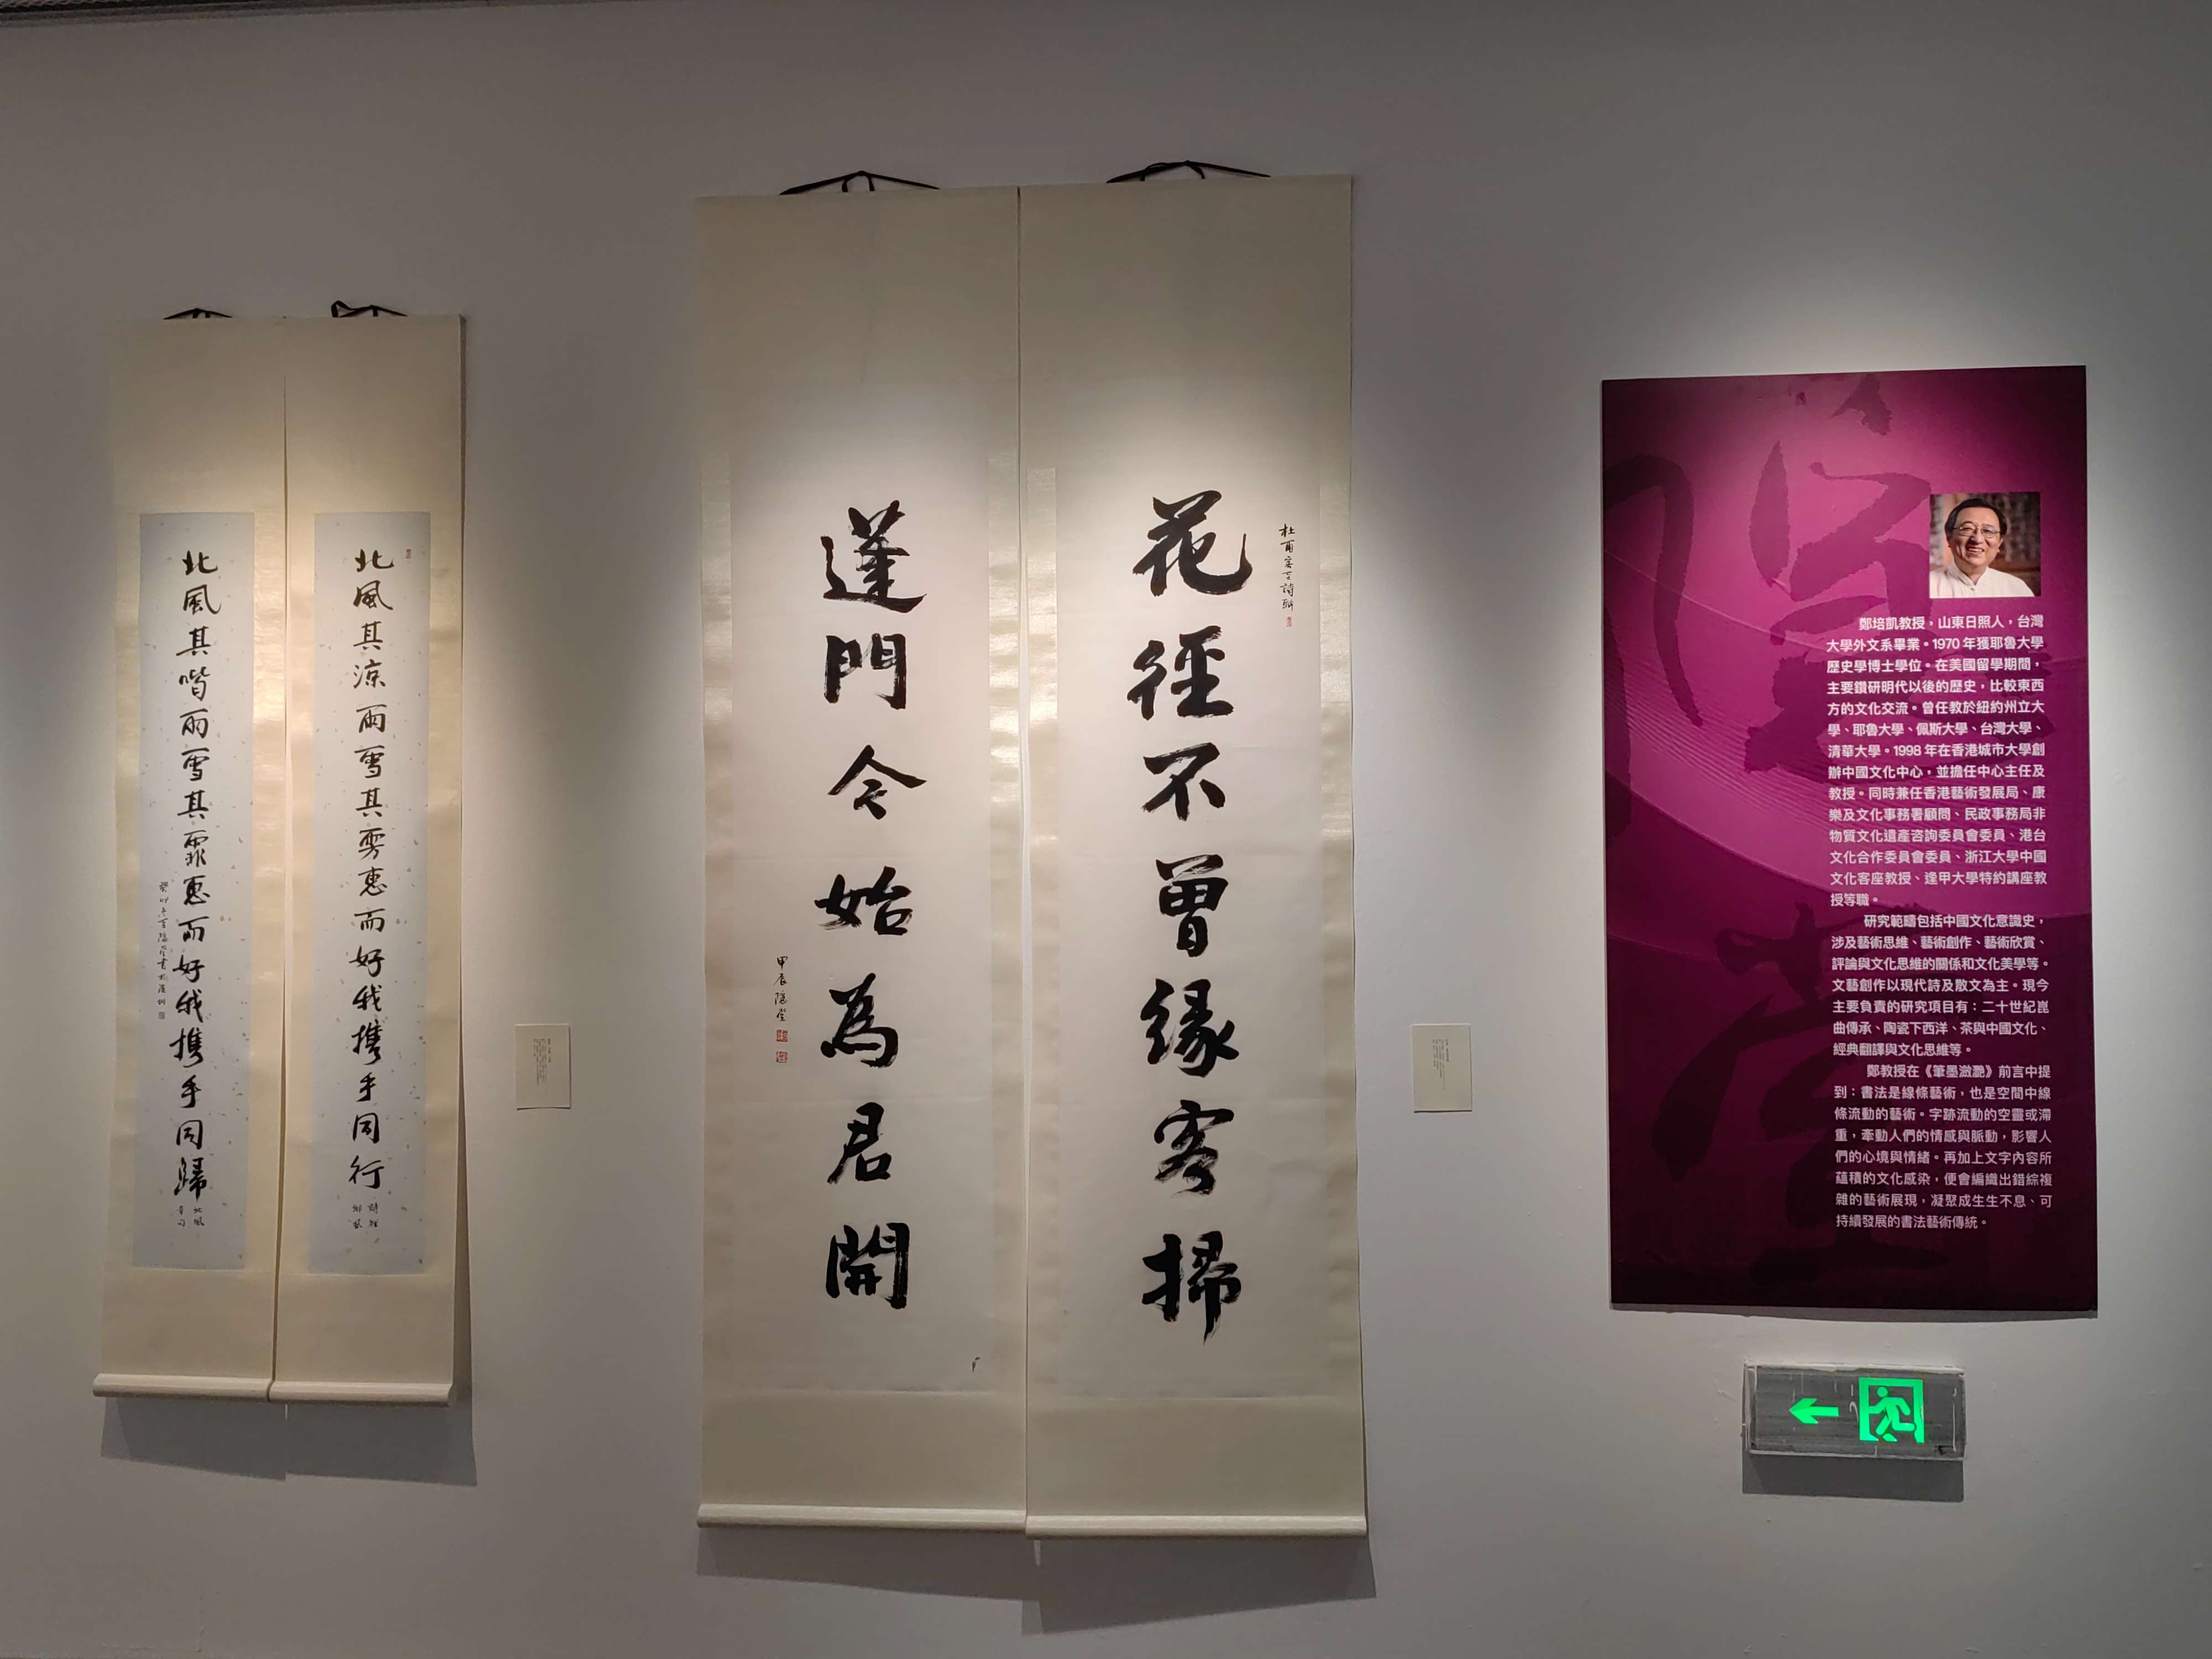 花徑不曾緣客掃
杜甫客至詩聯
蓬門今始為君開
甲辰隱堂
北風其涼雨雪其雱惠而好我携手同行
詩經
邶風
北風其喈雨雪其霏惠而好我携手同歸
北風
章句
鄭培凱教授，山東日照人，台灣
大學外文系畢業。1970 年獲耶魯大學
歷史學博士學位。在美國留學期間，
主要鑽研明代以後的歷史，比較東西
方的文化交流。曾任教於紐約州立大
學、耶魯大學、佩斯大學、台灣大學、
清華大學。1998 年在香港城市大學創
辦中國文化中心，並擔任中心主任及
教授。同時兼任香港藝術發展局、康
樂及文化事務署顧問、民政事務局非
物質文化遺產咨詢委員會委員、港台
文化合作委員會委員、浙江大學中國
文化客座教授、逢甲大學特約講座教
授等職。
研究範疇包括中國文化意識史，
涉及藝術思維、藝術創作、藝術欣賞、
評論與文化思維的關係和文化美學等。
文藝創作以現代詩及散文為主。現今
主要負責的研究項目有：二十世紀崑
曲傳承、陶瓷下西洋、茶與中國文化、
經典翻譯與文化思維等。
鄭教授在《筆墨瀲灩》前言中提
到：書法是線條藝術，也是空間中線
條流動的藝術。字跡流動的空靈或滯
重，牽動人們的情感與脈動，影響人
們的心境與情緒。再加上文字內容所
蘊積的文化感染，便會編織出錯綜複
雜的藝術展現，凝聚成生生不息、可
持續發展的書法藝術傳統。